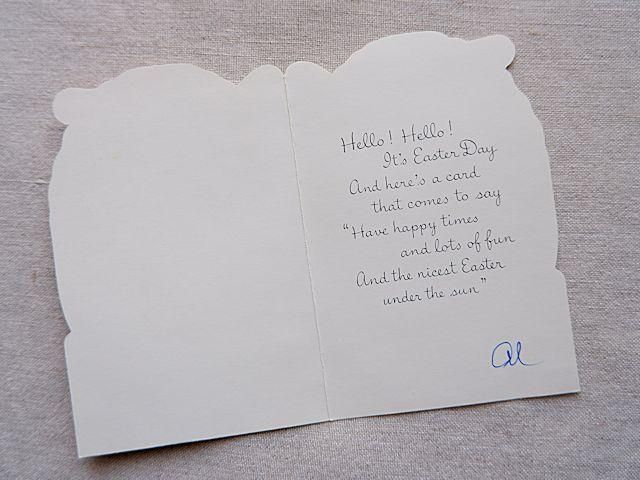 Hello! Hello!
It's Easter Day
And here's a card
that comes to say
"Have happy times
and lots of fun
And the nicest Easter
under the sun"
Al